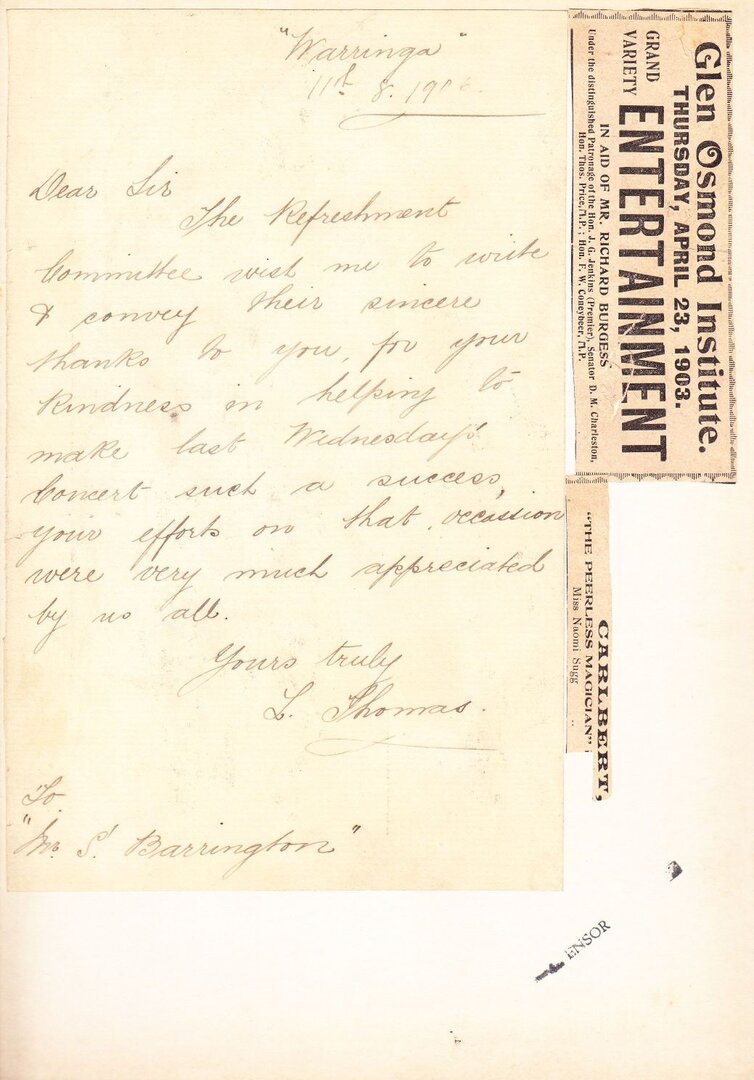 "Warringa"
11th 8. 190
Dear Sir
The Refreshment
Committee wish me to write
& convey their sincere
thanks to you, for your
kindness in helping to
make last Wednesday's
Concert such a success,
your efforts on that occassion
were very much appreciated
by us all.
Yours truly
L. Thomas.
To
"Mr. S. Barrington"
Glen Osmond Institute.
THURSDAY, APRIL 23, 1903.
GRAND
VARIETY
ENTERTAINMENT
IN AID OF MR. RICHARD BURGESS
Under the distinguished Patronage of the Hon. J. G. Jenkins (Premier), Senator D. M. Charleston,
Hon. Thos. Price, M.P.; Hon. E. W. Coneybeer, M.P.
CARLBERT,
"THE PEERLESS MAGICIAN";
Miss Naomi Sugg
ENSOR